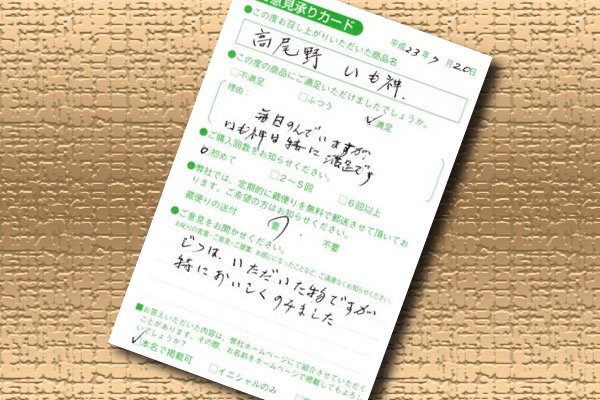 ご意見承りカード
平成23年7月20日
●この度お召し上がりいただいた商品名
高尾野 いも神.
●この度の商品にご満足いただけましたでしょうか。
□不満足 □ふつう ☑満足
理由:
毎日のんでいますが、
いも神は特に満足です
●ご購入回数をお知らせください。
初めて □2～5回 □6回以上
●弊社では、定期的に蔵便りを無料で郵送させて頂いてお
ります。ご希望の方はお知らせください。
蔵便りの送付 要 ・ 不要
●ご意見をお聞かせください。
お叱りの言葉・ご意見・ご提案、お感じになったことなど、ご遠慮なくお知らせください。
じつは、いただいた物ですが
特においしくのみました
■お答えいただいた内容は、弊社ホームページにて紹介させていただく
ことがあります。その際、お名前をホームページで掲載してもよろし
いでしょうか?
☑本名で掲載可 □イニシャルのみ